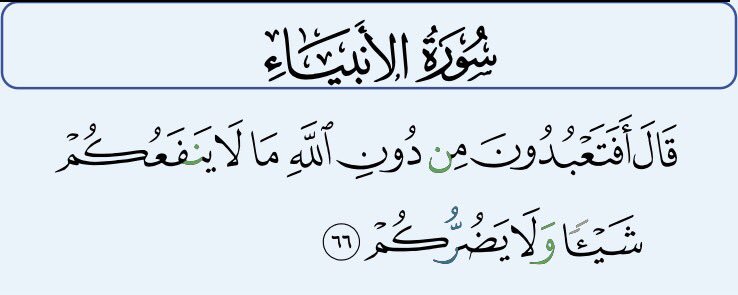 سُورَةُ الأَنبِيَاءِ
قَالَ أَفَتَعْبُدُونَ مِن دُونِ ٱللَّهِ مَا لَا يَنفَعُكُمْ
شَيْـًٔا وَلَا يَضُرُّكُمْ ٦٦